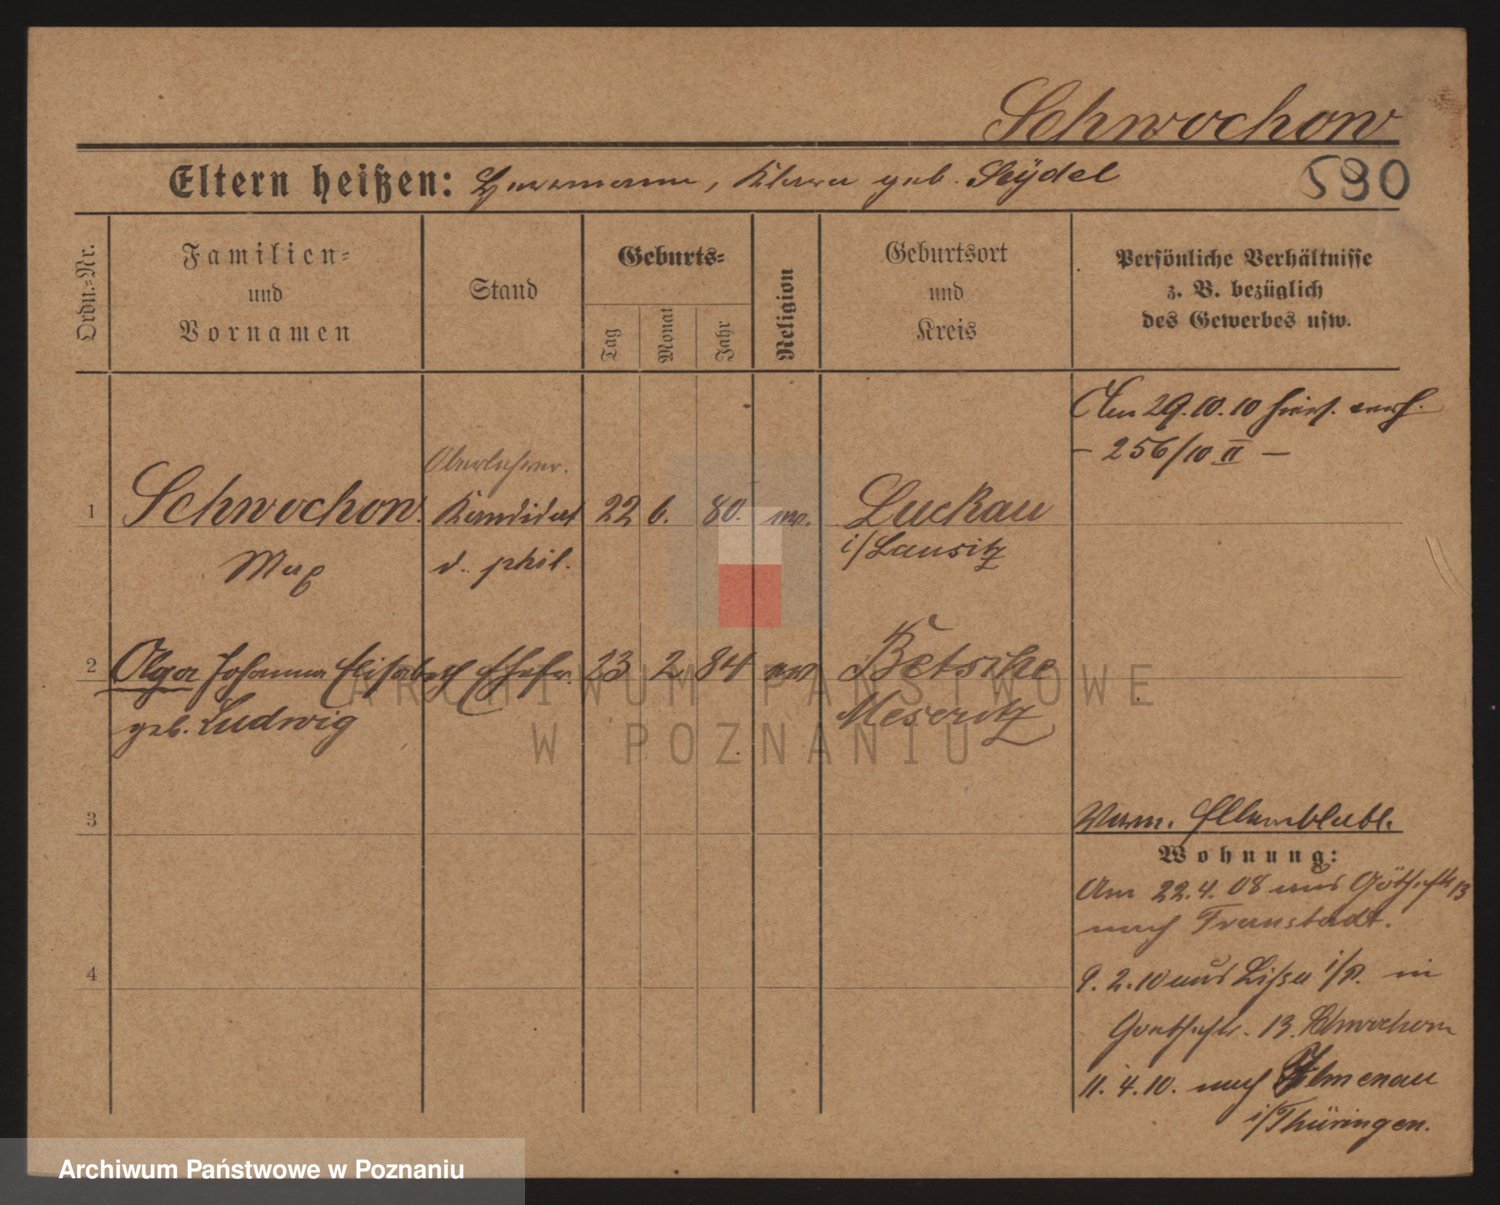 Schwochow
Eltern heißen: Herrmann, Klara geb. Seydel
590
Ordn.-Nr.
Familien-
und
Vornamen
Stand
Geburts-
Tag
Monat
Jahr
Religion
Geburtsort
und
Kreis
Persönliche Verhältnisse
z. B. bezüglich
des Gewerbes usw.
Am 29.10.10 hiers. verh.
- 256/10 II -
Oberlehrer.
1 Schwochow. Kandidat 22 6. 80. ev. Luckau
Max d. phil. i/Lausitz
2 Olga Johanna Elisabeth Ehefr. 23 2 84 ev Betsche
geb. Ludwig Meseritz
3
Wohnung:
Am 22.4.08 aus Göthestr 13
nach Fraustadt.
9.2.10 aus Lissa i/P. in
Goethestr. 13. Schwochow
4
11.4.10. nach Ilmenau
i/Thüringen.
ARCHIWUM PAŃSTWOWE
W POZNANIU
Archiwum Państwowe w Poznaniu